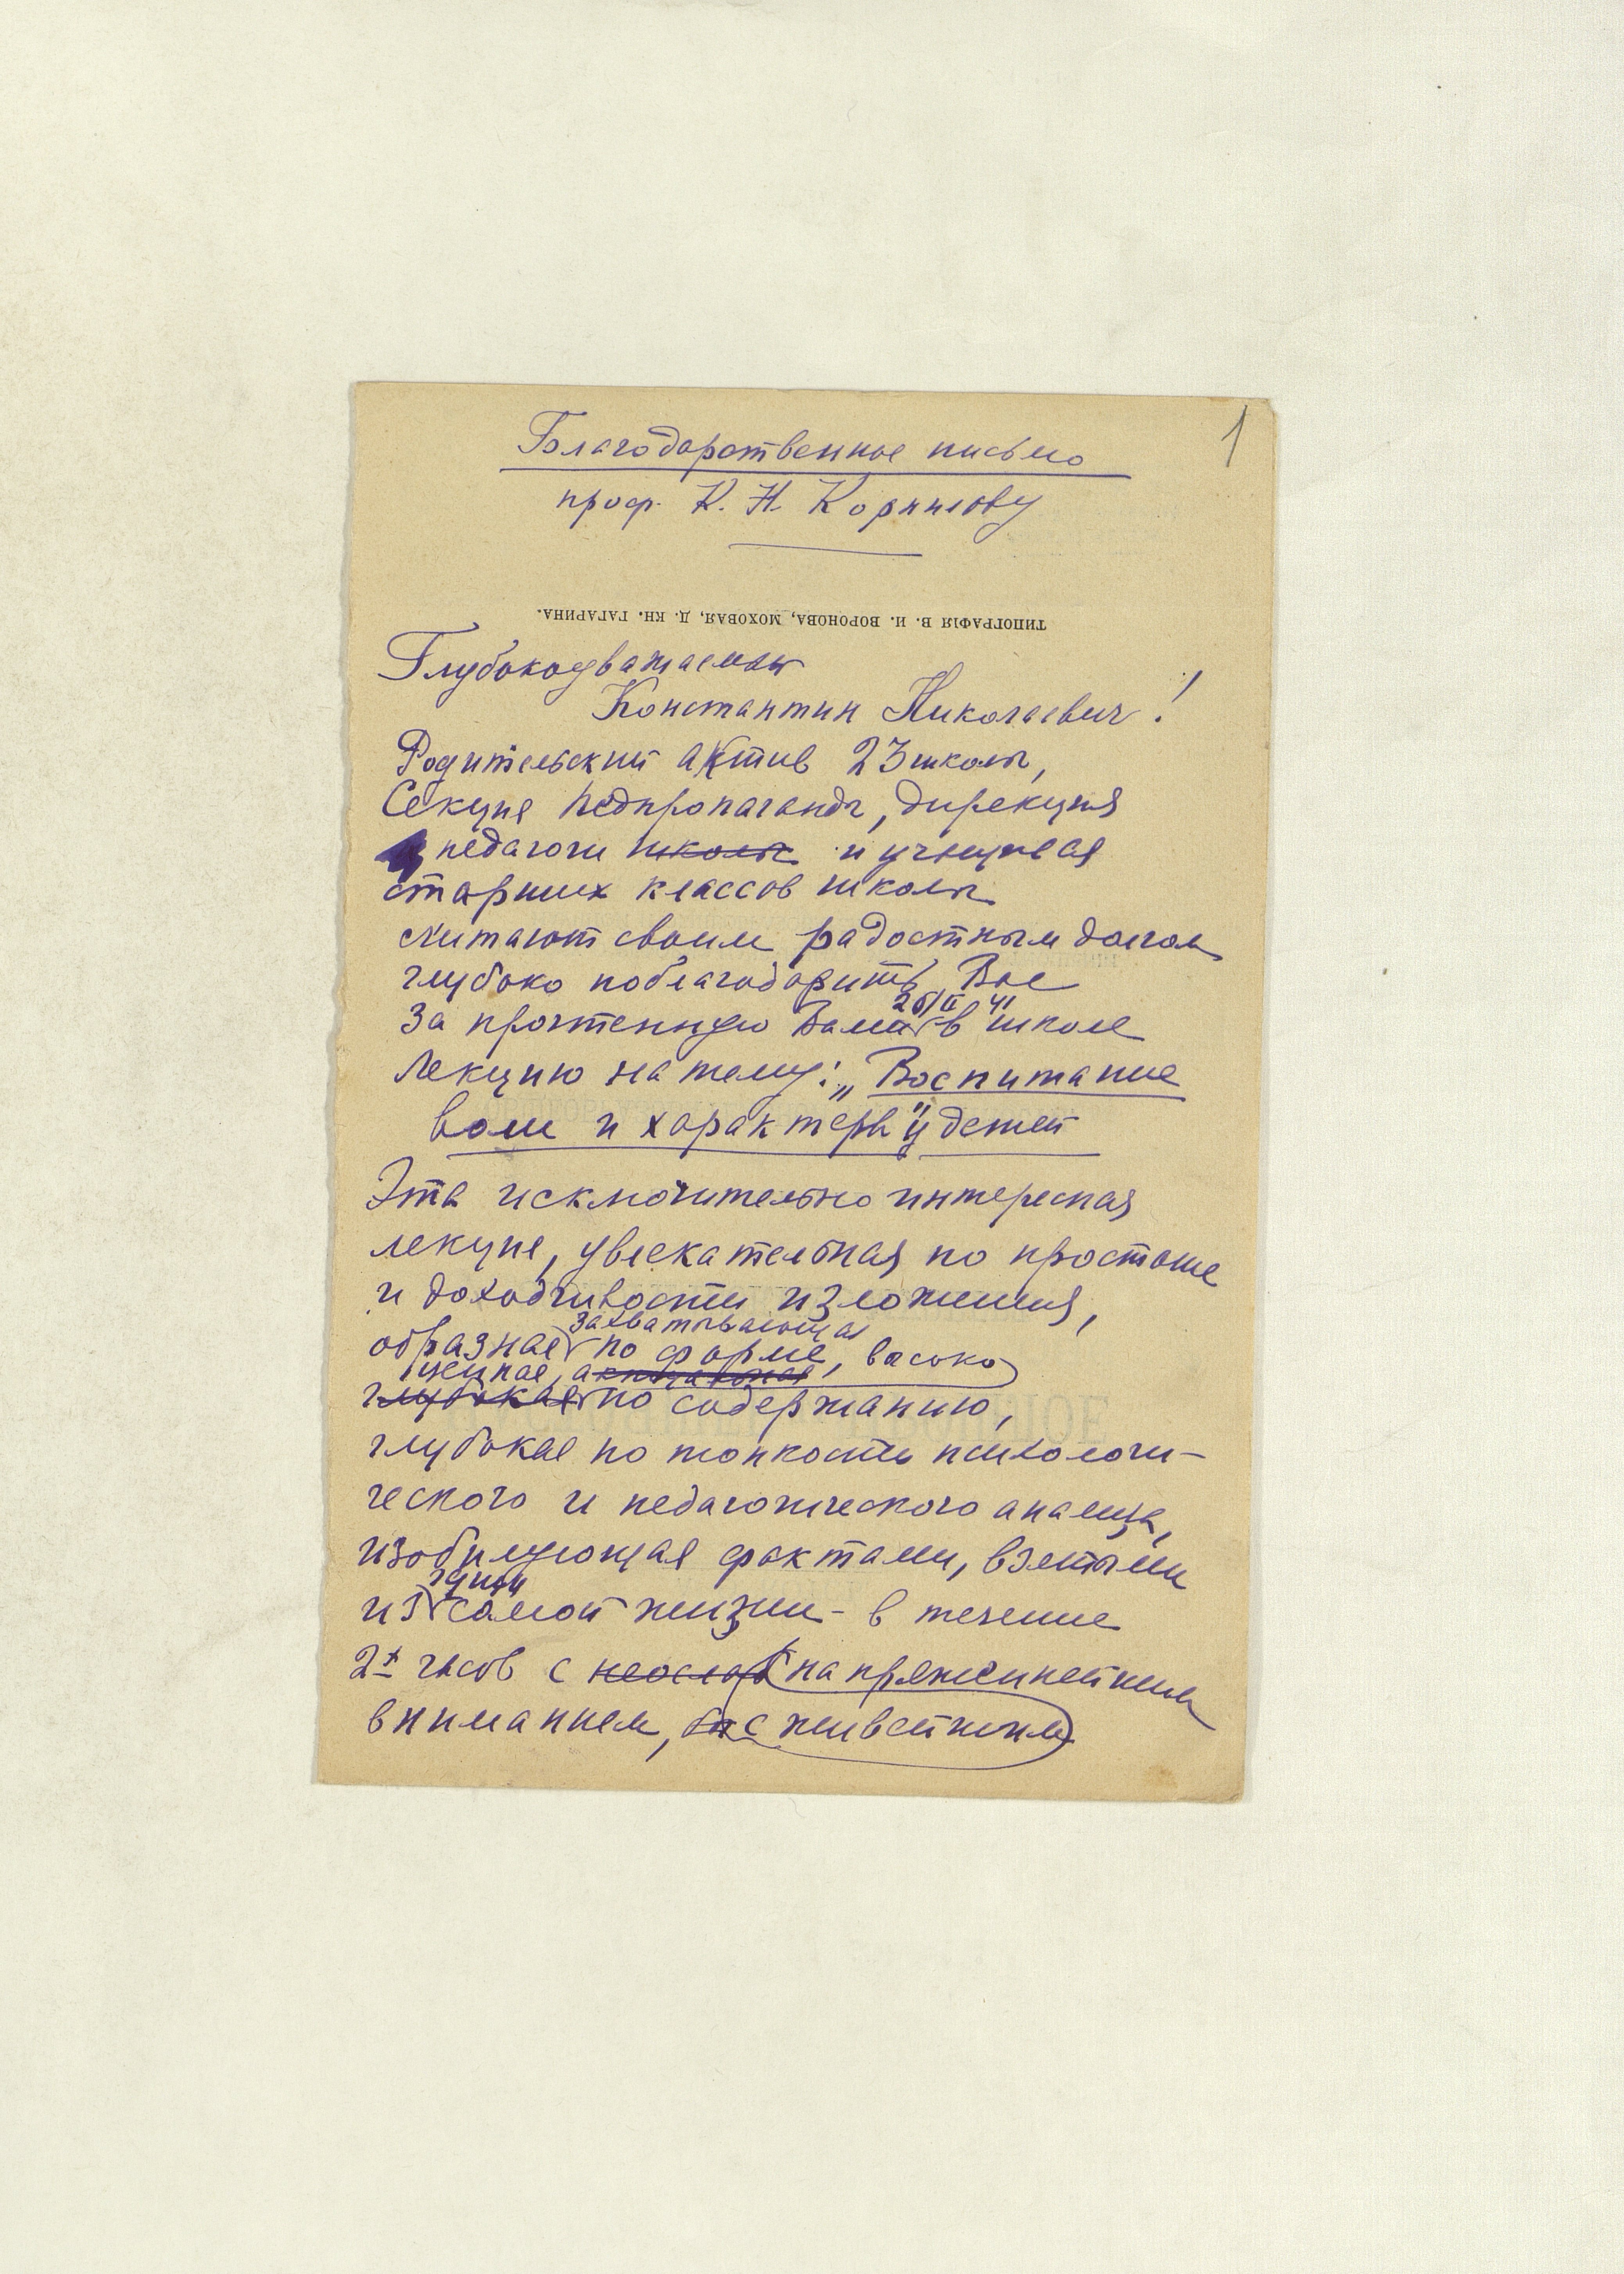 1
Благодарственное письмо
проф. К. Н. Корнилову
ТИПОГРАФІЯ В. И. ВОРОНОВА, МОХОВАЯ, Д. КН. ГАГАРИНА.
Глубокоуважаемы
Константин Николаевич!
Родительский актив 23 школы,
Секция педпропаганды, дирекция
педагоги школы и учащиеся
старших классов школы
считают своим радостным долгом
глубоко поблагодарить Вас
26/II 41
за прочтенную Вами в школе
лекцию на тему: „Воспитание
воли и характера" у детей
Эта исключительно интересная
лекция, увлекательная по простоте
и доходчивости изложения,
захватывающая
образная по форме, высоко
ценная, актуальная
глубокая по содержанию,
глубокая по тонкости психологи-
ческого и педагогического анализа,
изобилующая фактами, взятыми
из самой жизни - в течение
2х часов с неослаб напряженнейшим
вниманием, с живейшим